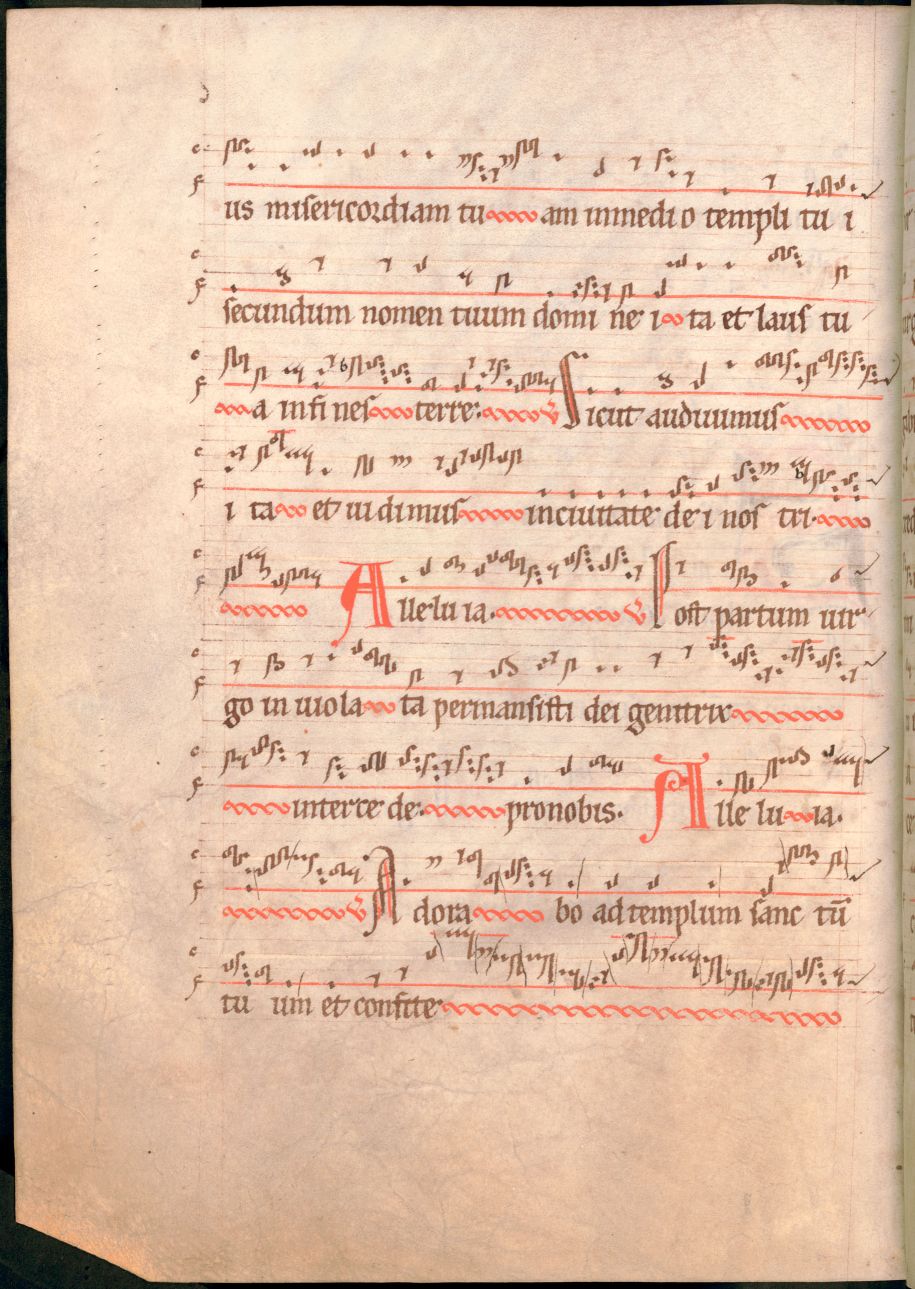 us misericordiam tu am in medi o templi tu i
secundum nomen tuum domi ne i ta et laus tu
a in fi nes terre: v̄ Sicut audiuimus
i ta et ui di mus in ciuitate de i nos tri.
Alle lu ia. v̄ Post partum uir
go in uiola ta permansisti dei genitrix
interce de. pro nobis. Alle lu ia.
v̄ A dora bo ad templum sanc tū
tu um et confite